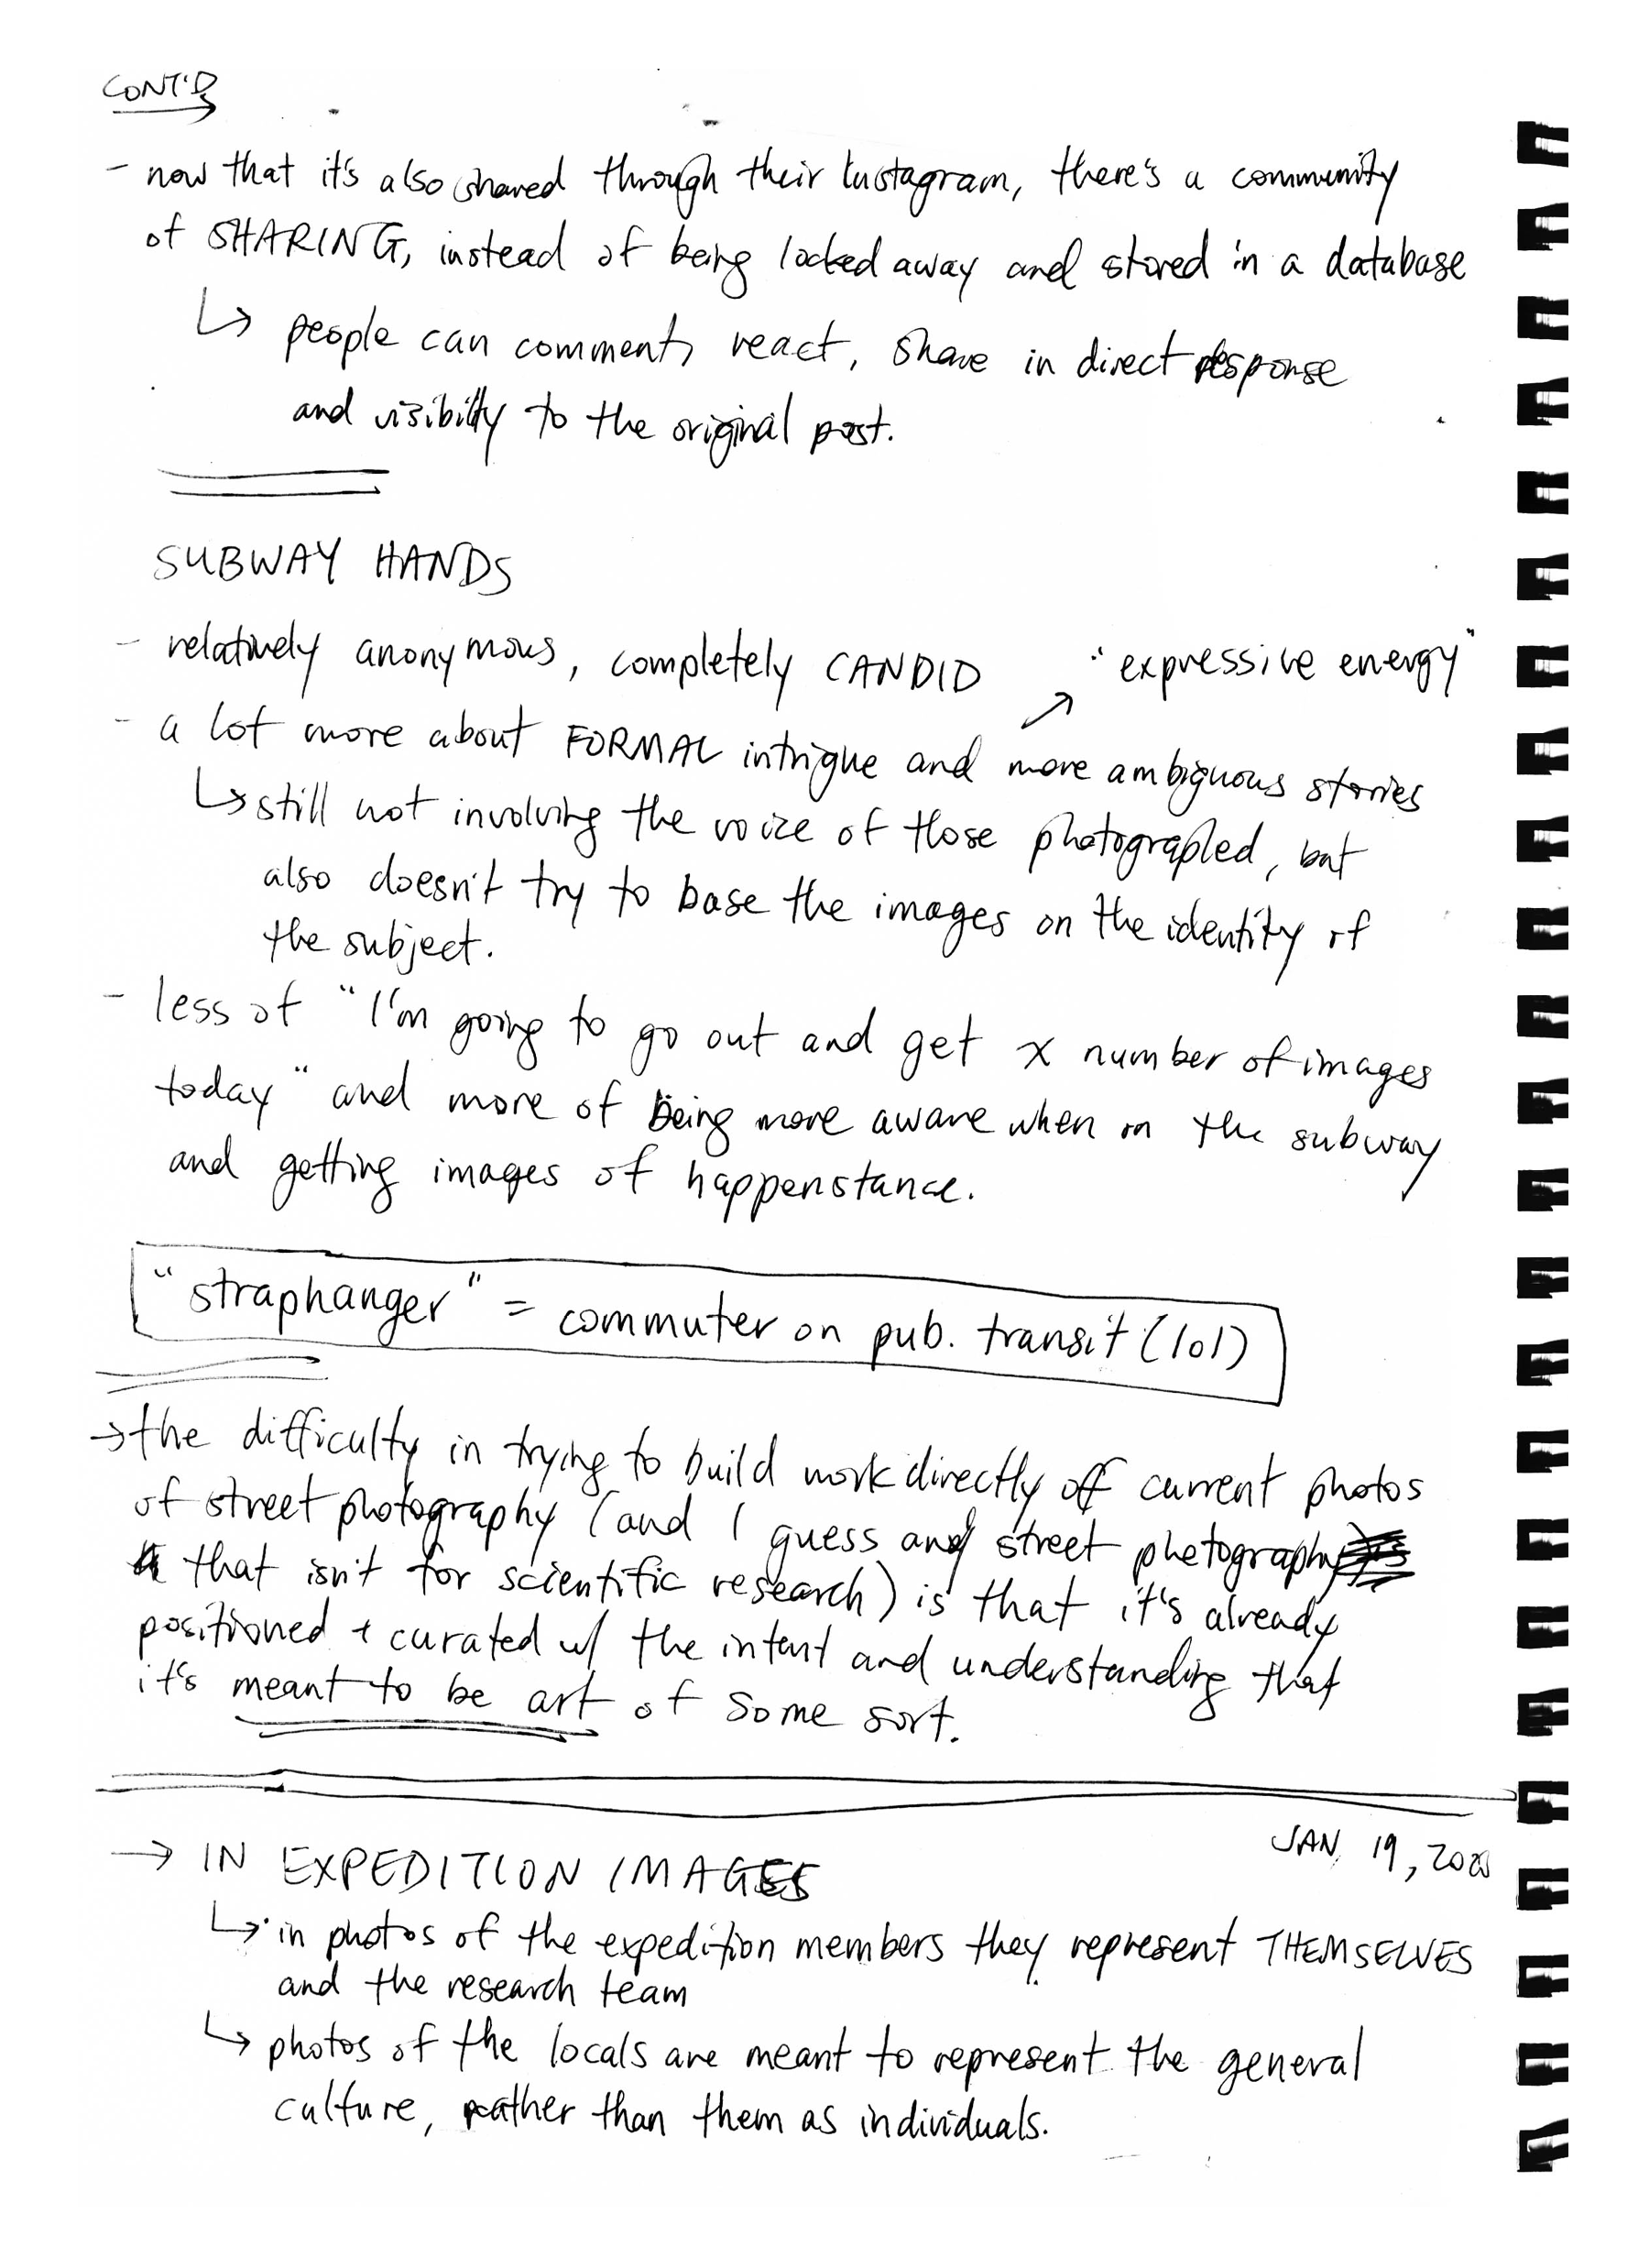 CONT'D
- now that it's also shared through their Instagram, there's a community
of SHARING, instead of being locked away and stored in a database
↳ people can comment, react, share in direct response
and visibility to the original post.
SUBWAY HANDS
- relatively anonymous, completely CANDID
"expressive energy"
- a lot more about FORMAL intrigue and more ambiguous stories
↳ still not involving the voice of those photographed, but
also doesn't try to base the images on the identity of
the subject.
- less of "I'm going to go out and get x number of images
today" and more of being more aware when on the subway
and getting images of happenstance.
"straphanger" = commuter on pub. transit (lol)
→ the difficulty in trying to build work directly off current photos
of street photography (and I guess any street photography
that isn't for scientific research) is that it's already
positioned + curated w/ the intent and understanding that
it's meant to be art of some sort.
JAN. 19,
→ IN EXPEDITION IMAGES
↳ in photos of the expedition members they represent THEMSELVES
and the research team
↳ photos of the locals are meant to represent the general
culture, rather than them as individuals.